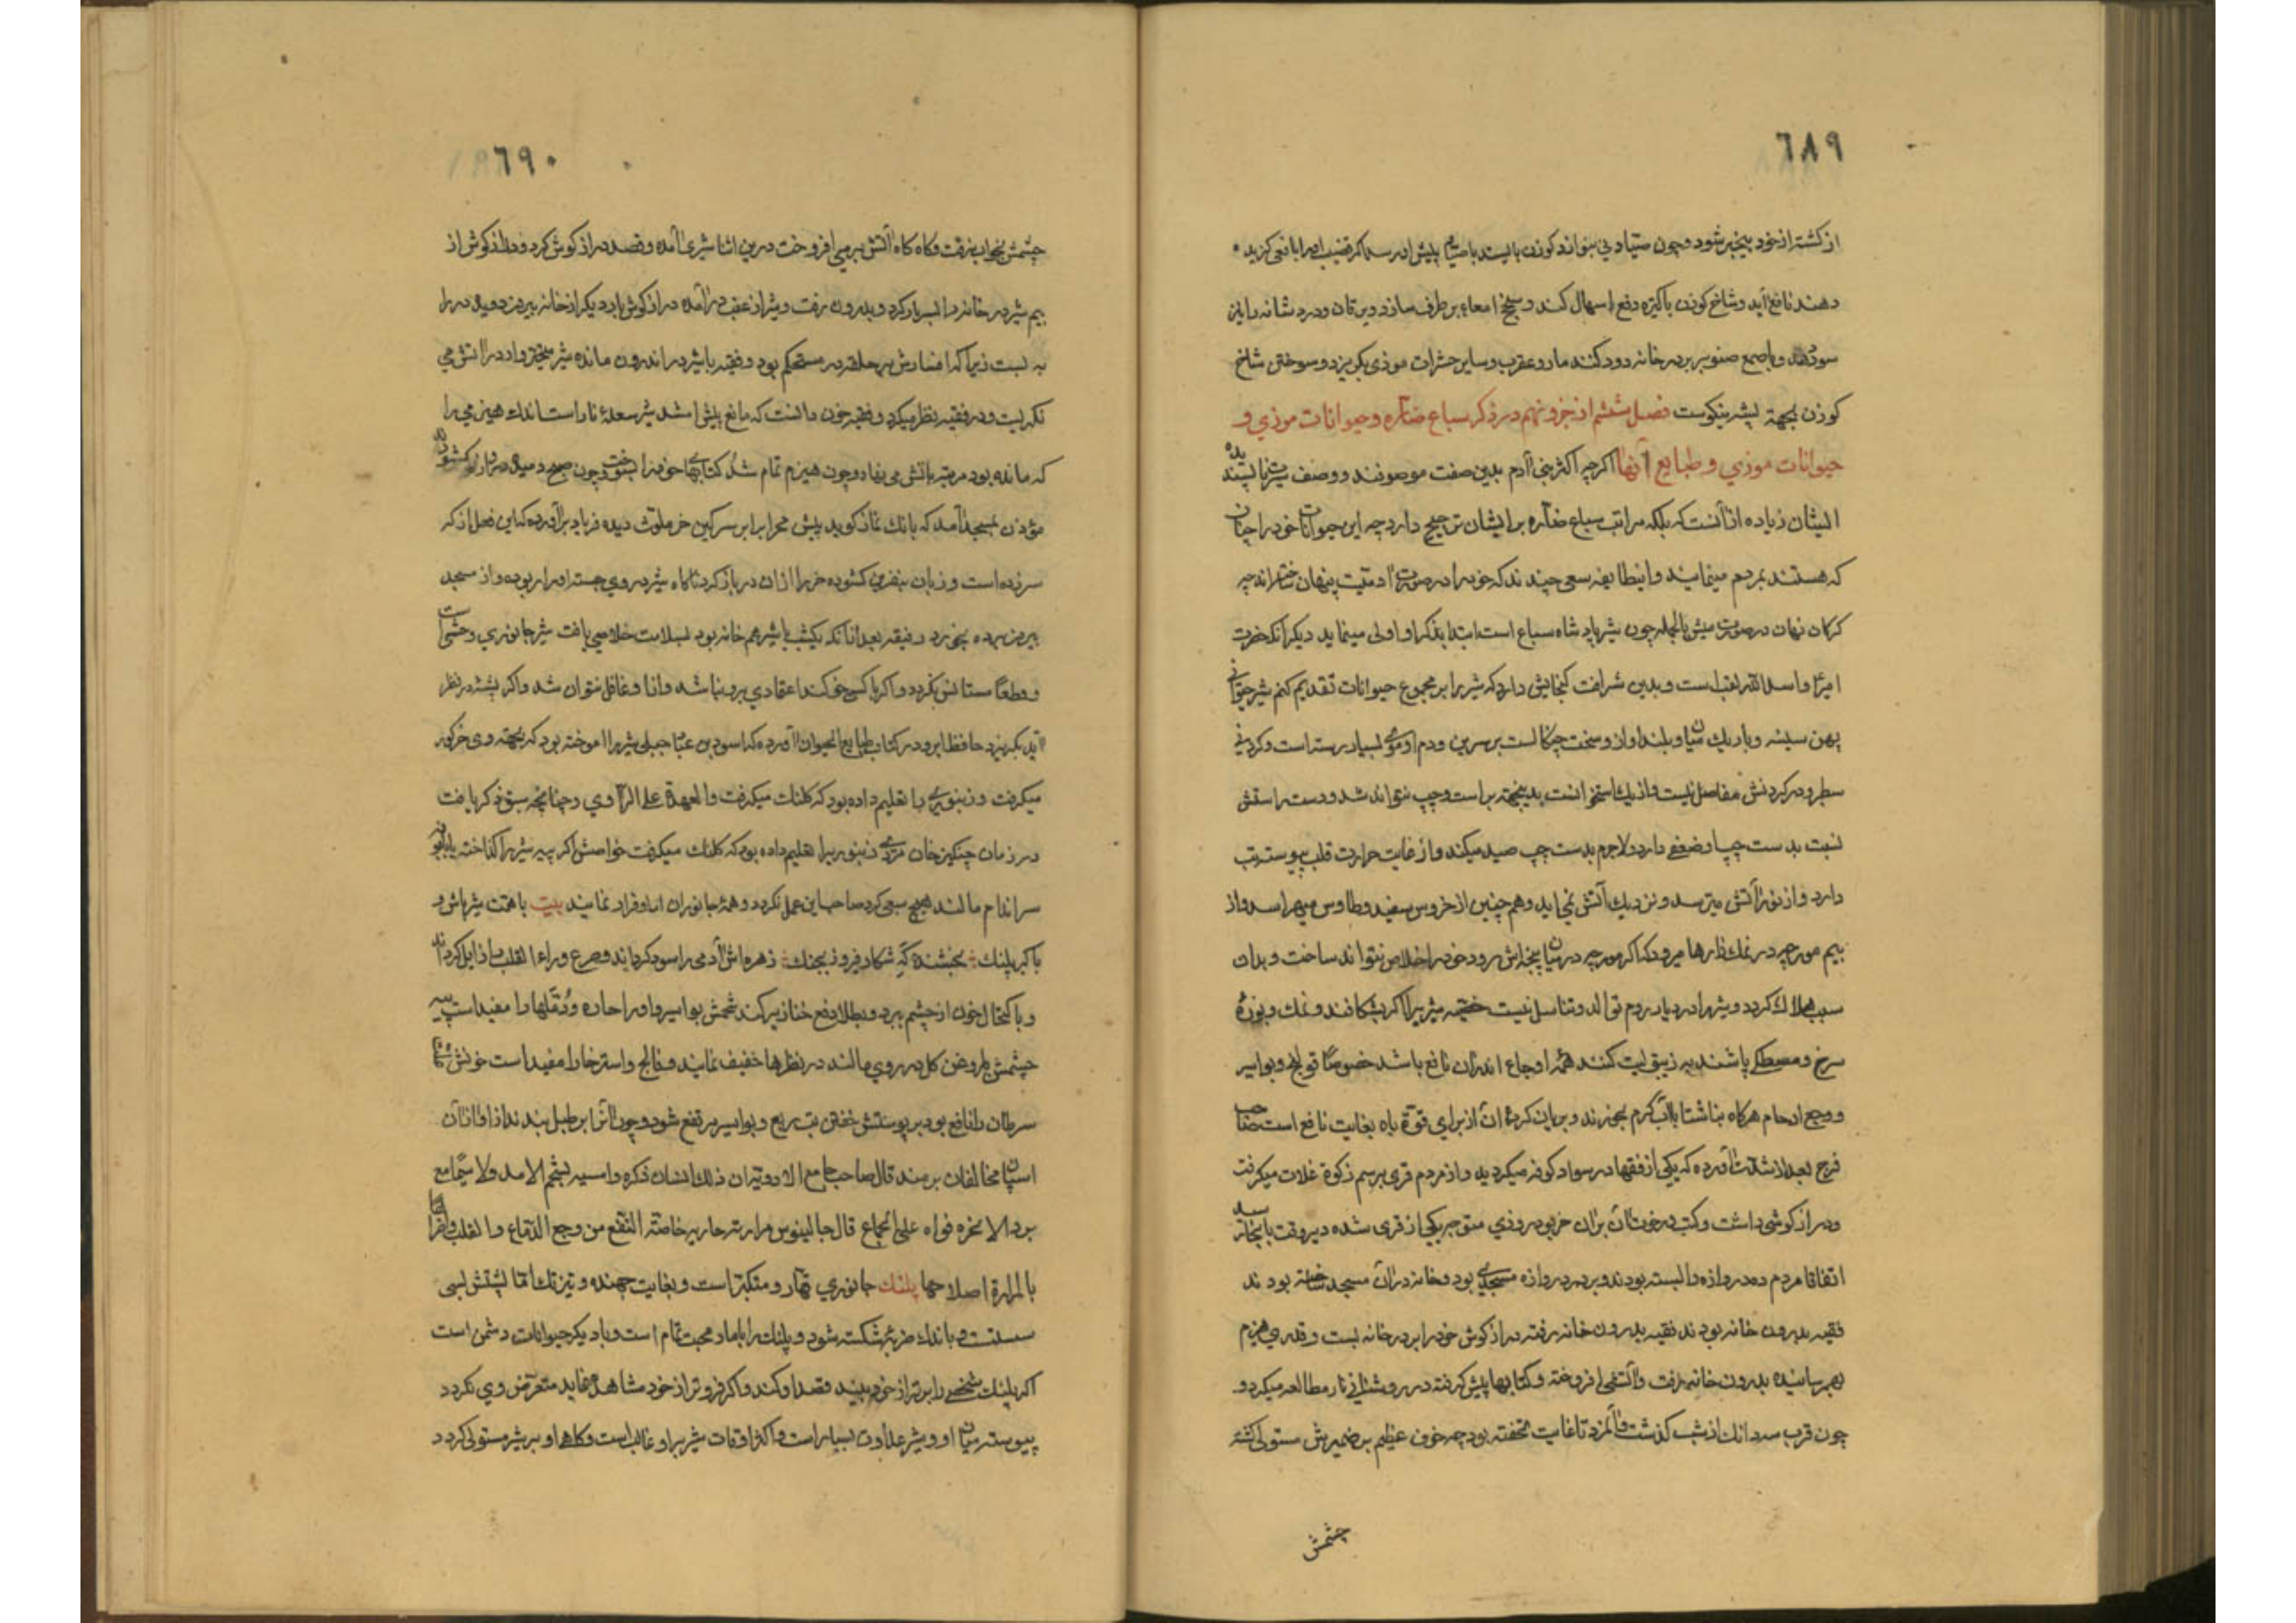 ٦٨٩
از کشتر از خود بیخبر شود و چون صیاد نی بنوازد کوزن بایستد
دهند نافع آید و شاخ کوزن باکتیره دفع اسهال کند و سحج امعاء برطرف سازد ویرقان و درد شانه را نیز
سود دهد و با صمغ صنوبر در خانه دود کنند مار و عقرب و سایر حشرات موذی بکریزد و سوختن شاخ
کوزن بجهة پشه نیکوست فصل ششم از جزو نهم در ذکر سباع ضاره و حیوانات موذی و
حیوانات موذی و طبایع آنها اکرچه اکثر بنی آدم بدین صفت موصوفند و وصف سیرت ناپسندیده
ایشان زیاده از آنست که بلکه مراتب سباع ضاره بر ایشان ترجیح دارد چه این حیوانات خود را چنان
که هستند بمردم مینمایند و اینطایفه سعی چیند ند که خود را در صورت آدمیت پنهان ساخته اند چه
کرکان نهان در صورت میش بالجمله چون شیر پادشاه سباع است ابتدا بذکر او اولی مینماید دیکر آنکه حضرت
امیر را اسد الله لقب است و بدین شرافت کنجایش دارد که شیر را بر مجموع حیوانات تقدیم کنم شیر حیوانی
پهن سینه و باریک میان و بلند آواز و سخت چنکال است بر سرین و دم او موی بسیار رسته است و کردنی
سطبر و در کردنش مفاصل نیست و از یک استخوانست بدینجهة براست و چپ نتواند شد و دست راستش
نسبت بدست چپ او ضعفی دارد و لاجرم بدست چپ صید میکند و از غایت حرارت قلب پیوسته تب
دارد و از نور آتش میترسد و نزدیک آتش نمی آید و هم چنین از خروس سفید و طاوس میهراسد و از
بیم مورچه در نمک زارها میرود که اکر مورچه در میان پنجه اش رود خود را خلاص نتواند ساخت و بدان
سبب هلاک کردد و شیر را در دیار روم توالد و تناسل نیست خصیه شیر را اکر بشکافند و نمک و بوره
سرخ و مصطکی پاشند به زیبق لیت کنند همه اوجاع اندران نافع باشد خصوصا قولنج و بواسیر
و وجع ارحام هرکاه بناشتا با آب کرم بخورند و بریان کرده آن از برای قوة باه بغایت نافع است صاحب
فرج بعد الشدت آورده که یکی از فقها در سواد کوفه میکردید و از مردم قری برسم زکوة غلات میکرفت
و دراز کوشی داشت و کتب در خورجین بران خر بود روزی متوجه یکی از قری شده دیروقت بآنجا رسید
اتفاقا مردم ده دروازه را بسته بودند و بر در دروازه مسجدی بود و خانه در آن مسجد ساخته بودند
فقیه بدرون خانه بودند فقیه بدرون خانه رفته دراز کوش خود را بر در خانه بست و قدری هیزم
بهم رسانیده بدرون خانه رفت و آتشی افروخته و کتابها پیش کرفته در روشنائی نار مطالعه میکرد و
چون قرب سه دانک از شب کذشت و آنمرد تا غایت نخفته بود چه خوف عظیم بر ضمیرش مستولی کشته
چشمش
٦٩٠
چشمش بخواب نرفت و کاه کاه آتش بر می افروخت درین اثنا شیری آمده و قصد دراز کوش کرد و دراز کوش از
بیم شیر در خانه را بسر باز کرد و بدرون رفت و شیر از عقب درآمده دراز کوش بار دیکر از خانه بیرون دوید و در را
به بست زیرا که افسارش بر حلقه در مستحکم بود و فقیه با شیر در اندرون مانده شیر متحیر وار در آتش می
نکریست و در فقیه نظر میکرد و فقیه چون دانست که مانع پیش آمد شیر شعلهٔ نار است اندک هیزمی را
که مانده بود مرتبه بآتش می نهاد و چون هیزم تمام شد کتابهای خود را بسوخت و چون صبح دمید
مؤذن بمسجد آمد که بانک نماز کوید پیش محراب را بر سرکین خر ملوث دیده فریاد برآورده که این فعل از که
سر زده است و زبان بنفرین کشوده خر را از آن در باز کرد ناکاه شیر در وی جسته او را ربوده و از مسجد
بیرون برده بخورد و فقیه بعد از آنکه یکشب با شیر هم خانه بود بسلامت خلاصی یافت شیر جانوری وحشی است
و قطعا مستأنس نکردد و اکر با کسی خو کند اعتمادی برو نباشد و از او غافل نتوان شد و اکر پشه در نظر
آید بکریزد حافظ ابرو در کتاب طبایع الحیوان آورده که اسود بن جبلی شیر را آموخته بود که بجهة وی خر کور
میکرفت و زنبوری را تعلیم داده بود که کلنک میکرفت والعهدة علی الراوی و چنانچه سبق ذکر یافت
در زمان چنکیز خان مردی زنبوری را تعلیم داده بود که کلنک میکرفت خواصش اکر پیه شیر را کداخته
سر اندام مالند هیچ سبعی کرد صاحب این عمل نکردد و همهٔ جانوران از او فرار نمایند بیت با همت شیر باش و
با کبر پلنک بخشنده که شکار فیروز بجنک زهره اش آدمی را سود کرداند و صرع و داء القلب را زایل کرداند
و با اکتحال خون از چشم ببرد و بطلا دفع خنازیر کند شحمش بواسیر و اورام حاره و دملها را مفید است پیه
چشمش با روغن کل در روی مالند در نظرها خفیف نمایند و فالج و استرخا را مفید است خونش
سرطان را نافع بود بر پوستش خفتن تب ربع و بواسیر مرتفع شود و چون آنرا بر طبل بندند از آواز آن
اسپان مخالفان برمند قال صاحب جامع الادویة ان ذلک انسان ذکره و اسیر بشحم الاسد ولا سیما مع
برد الاخره فواه علی الجماع قال جالینوس مرارته حاریه خاصته النفع من وجع الدماغ والقلب
بالمرارة اصلاحها پلنک جانوری قهار و متکبر است و بغایت جهنده و تیز تک اما پشتش بسی
سست و باندک ضربهٔ شکسته شود و پلنک را با مار محبت تمام است و با دیکر حیوانات دشمن است
اکر پلنک شخصی را برتر از خود بیند قصد او کند و اکر فروتر از خود مشاهده نماید متعرض وی نکردد
پیوسته میان او و شیر عداوت بسیار است و اکثر اوقات شیر بر او غالب است و کاهی او بر شیر مستولی کردد